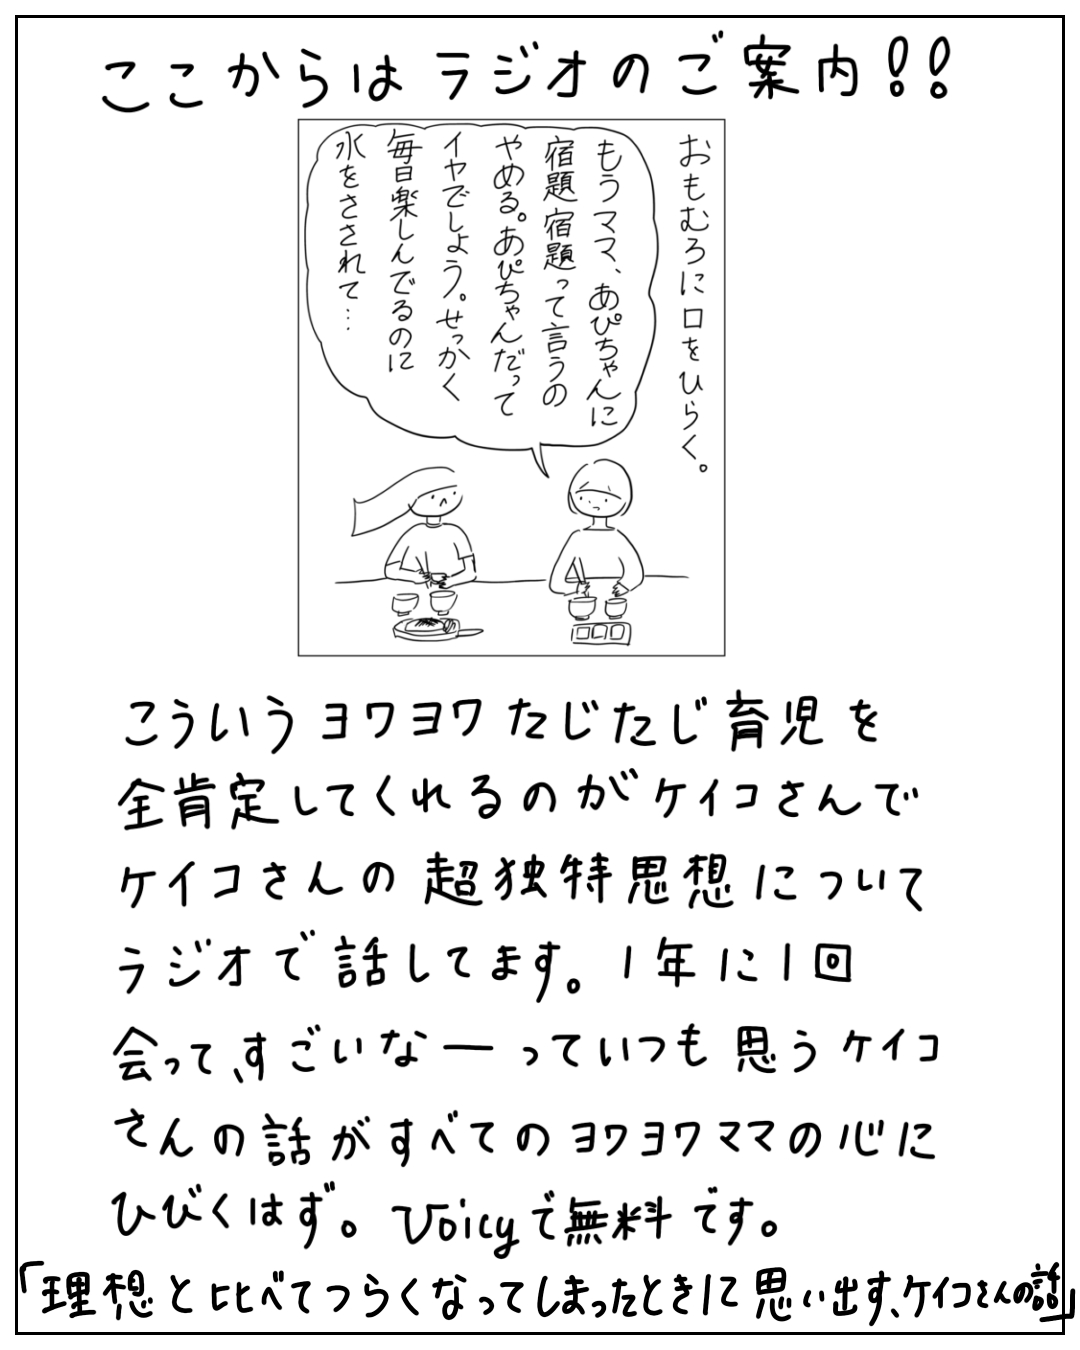 ここからはラジオのご案内!!
おもむろに口をひらく。
もうママ、あぴちゃんに
宿題宿題って言うの
やめる。あぴちゃんだって
イヤでしょう。せっかく
毎日楽しんでるのに
水をさされて…
こういうヨワヨワたじたじ育児を
全肯定してくれるのがケイコさんで
ケイコさんの超独特思想について
ラジオで話してます。1年に1回
会って、すごいなーっていつも思うケイコ
さんの話がすべてのヨワヨワママの心に
ひびくはず。Voicyで無料です。
「理想と比べてつらくなってしまったときに思い出す、ケイコさんの話」